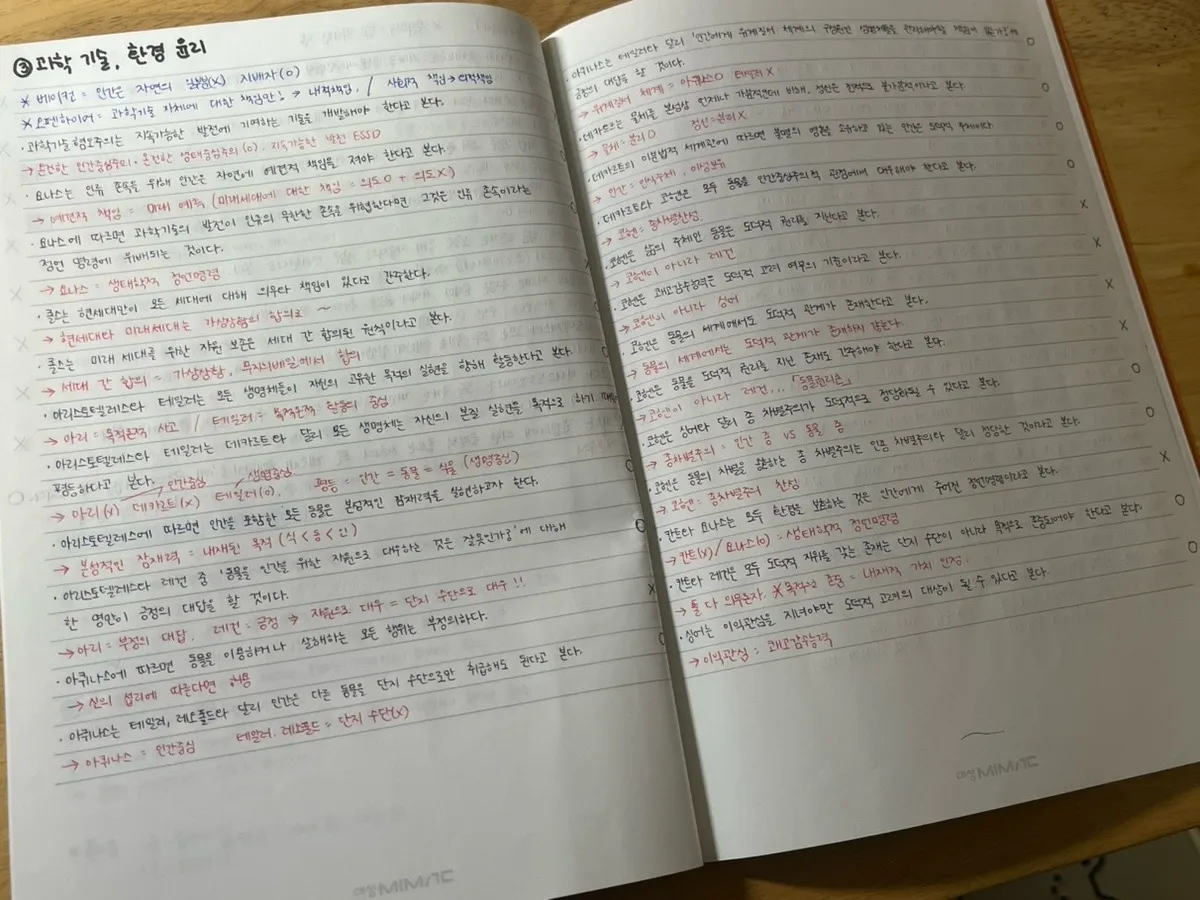 ③ 과학 기술, 환경 윤리
* 베이컨 = 인간은 자연의 (X) 지배자(O)
* 오펜하이머 = 과학기술 자체에 대한 책임만! → 내적책임, / 사회적 책임 → 외적책임
· 과학기술 혐오주의는 지속가능한 발전에 기여하는 기술을 개발해야 한다고 본다.
→ 온건한 인간중심주의 · 온건한 생태중심주의 (O). 지속가능한 발전 ESSD
· 요나스는 인류 존속을 위해 인간은 자연에 예견적 책임을 져야 한다고 본다.
→ 예견적 책임 = 미래 예측 (미래세대에 대한 책임 = 의도O + 의도X)
· 요나스에 따르면 과학기술의 발전이 인류의 무한한 존속을 위협한다면 그것은 인류 존속이라는
정언 명령에 위배되는 것이다.
→ 요나스 = 생태학적 정언명령
· 롤스는 현세대만이 모든 세대에 대해 의무와 책임이 있다고 간주한다.
→ 현세대와 미래세대는 가상상황의 합의로 ~
· 롤스는 미래 세대를 위한 자원 보존은 세대 간 합의된 원칙이라고 본다.
→ 세대 간 합의 = 가상상황, 무지의베일에서 합의
· 아리스토텔레스와 테일러는 모든 생명체들이 자신의 고유한 목적의 실현을 향해 활동한다고 본다.
→ 아리 = 목적론적 사고 / 테일러 = 목적론적 활동의 중심
· 아리스토텔레스와 테일러는 데카르트와 달리 모든 생명체는 자신의 본질 실현을 목적으로 하기 때문에
평등하다고 본다. 인간중심 생명중심
→ 아리(X) 데카르트(X) 테일러(O). 평등 = 인간 = 동물 = 식물 (생명중심)
· 아리스토텔레스에 따르면 인간을 포함한 모든 동물은 본성적인 잠재력을 실현하고자 한다.
→ 본성적인 잠재력 = 내재된 목적 (식 < 동 < 인)
· 아리스토텔레스와 레건 중 '동물을 인간을 위한 자원으로 대우하는 것은 잘못인가?'에 대해
한 명만이 긍정의 대답을 할 것이다.
→ 아리 = 부정의 대답, 레건 = 긍정 → 자원으로 대우 = 단지 수단으로 대우!!
· 아퀴나스에 따르면 동물을 이용하거나 살해하는 모든 행위는 부정의하다.
→ 신의 섭리에 따른다면 허용
· 아퀴나스는 테일러, 레오폴드와 달리 인간은 다른 동물을 단지 수단으로만 취급해도 된다고 본다.
→ 아퀴나스 = 인간중심 테일러. 레오폴드 = 단지 수단(X)
· 아퀴나스는 테일러와 달리 '인간에게 위계질서 체계의 구성원인 생명체들을 관리해야할 책임이 있는가?'에
긍정의 대답을 할 것이다. O
→ 위계질서 체계 = 아퀴나스O 테일러X
· 데카르트는 물체를 본성상 언제나 가분적인데 비해, 정신은 전적으로 불가분적이라고 본다. O
→ 물체 = 분리O 정신 = 분리X
· 데카르트의 이분법적 세계관에 따르면 불멸의 영혼을 소유하고 있는 인간은 도덕적 주체이다. O
→ 인간 = 인식주체, 이성보유
· 데카르트와 코헨은 모두 동물을 인간중심주의적 관점에서 대우해야 한다고 본다. O
→ 코헨 = 종차별찬성.
· 코헨은 삶의 주체인 동물은 도덕적 권리를 지닌다고 본다. X
→ 코헨이 아니라 레건
· 코헨은 쾌고감수능력은 도덕적 고려 여부의 기준이라고 본다. X
→ 코헨이 아니라 싱어
· 코헨은 동물의 세계에서도 도덕적 관계가 존재한다고 본다. X
→ 동물의 세계에서는 도덕적 관계가 존재하지 않는다.
· 코헨은 동물을 도덕적 권리를 지닌 존재로 간주해야 한다고 본다. X
→ 코헨이 아니라 레건... 「동물권리론」
· 코헨은 싱어와 달리 종 차별주의가 도덕적으로 정당화될 수 있다고 본다. O
→ 종차별주의 = 인간 종 VS 동물 종
· 코헨은 동물의 차별을 옹호하는 종 차별주의는 인종 차별주의와 달리 정당한 것이라고 본다. O
→ 코헨 = 종차별주의 찬성
· 칸트와 요나스는 모두 환경을 보호하는 것은 인간에게 주어진 정언명령이라고 본다. X
→ 칸트(X) / 요나스(O) = 생태학적 정언명령
· 칸트와 레건은 모두 도덕적 지위를 갖는 존재는 단지 수단이 아니라 목적으로 존중되어야 한다고 본다. O
→ 둘 다 의무론자. * 목적으로 존중 = 내재적 가치 인정.
· 싱어는 이익관심을 지녀야만 도덕적 고려의 대상이 될 수 있다고 본다. O
→ 이익관심 = 쾌고감수능력